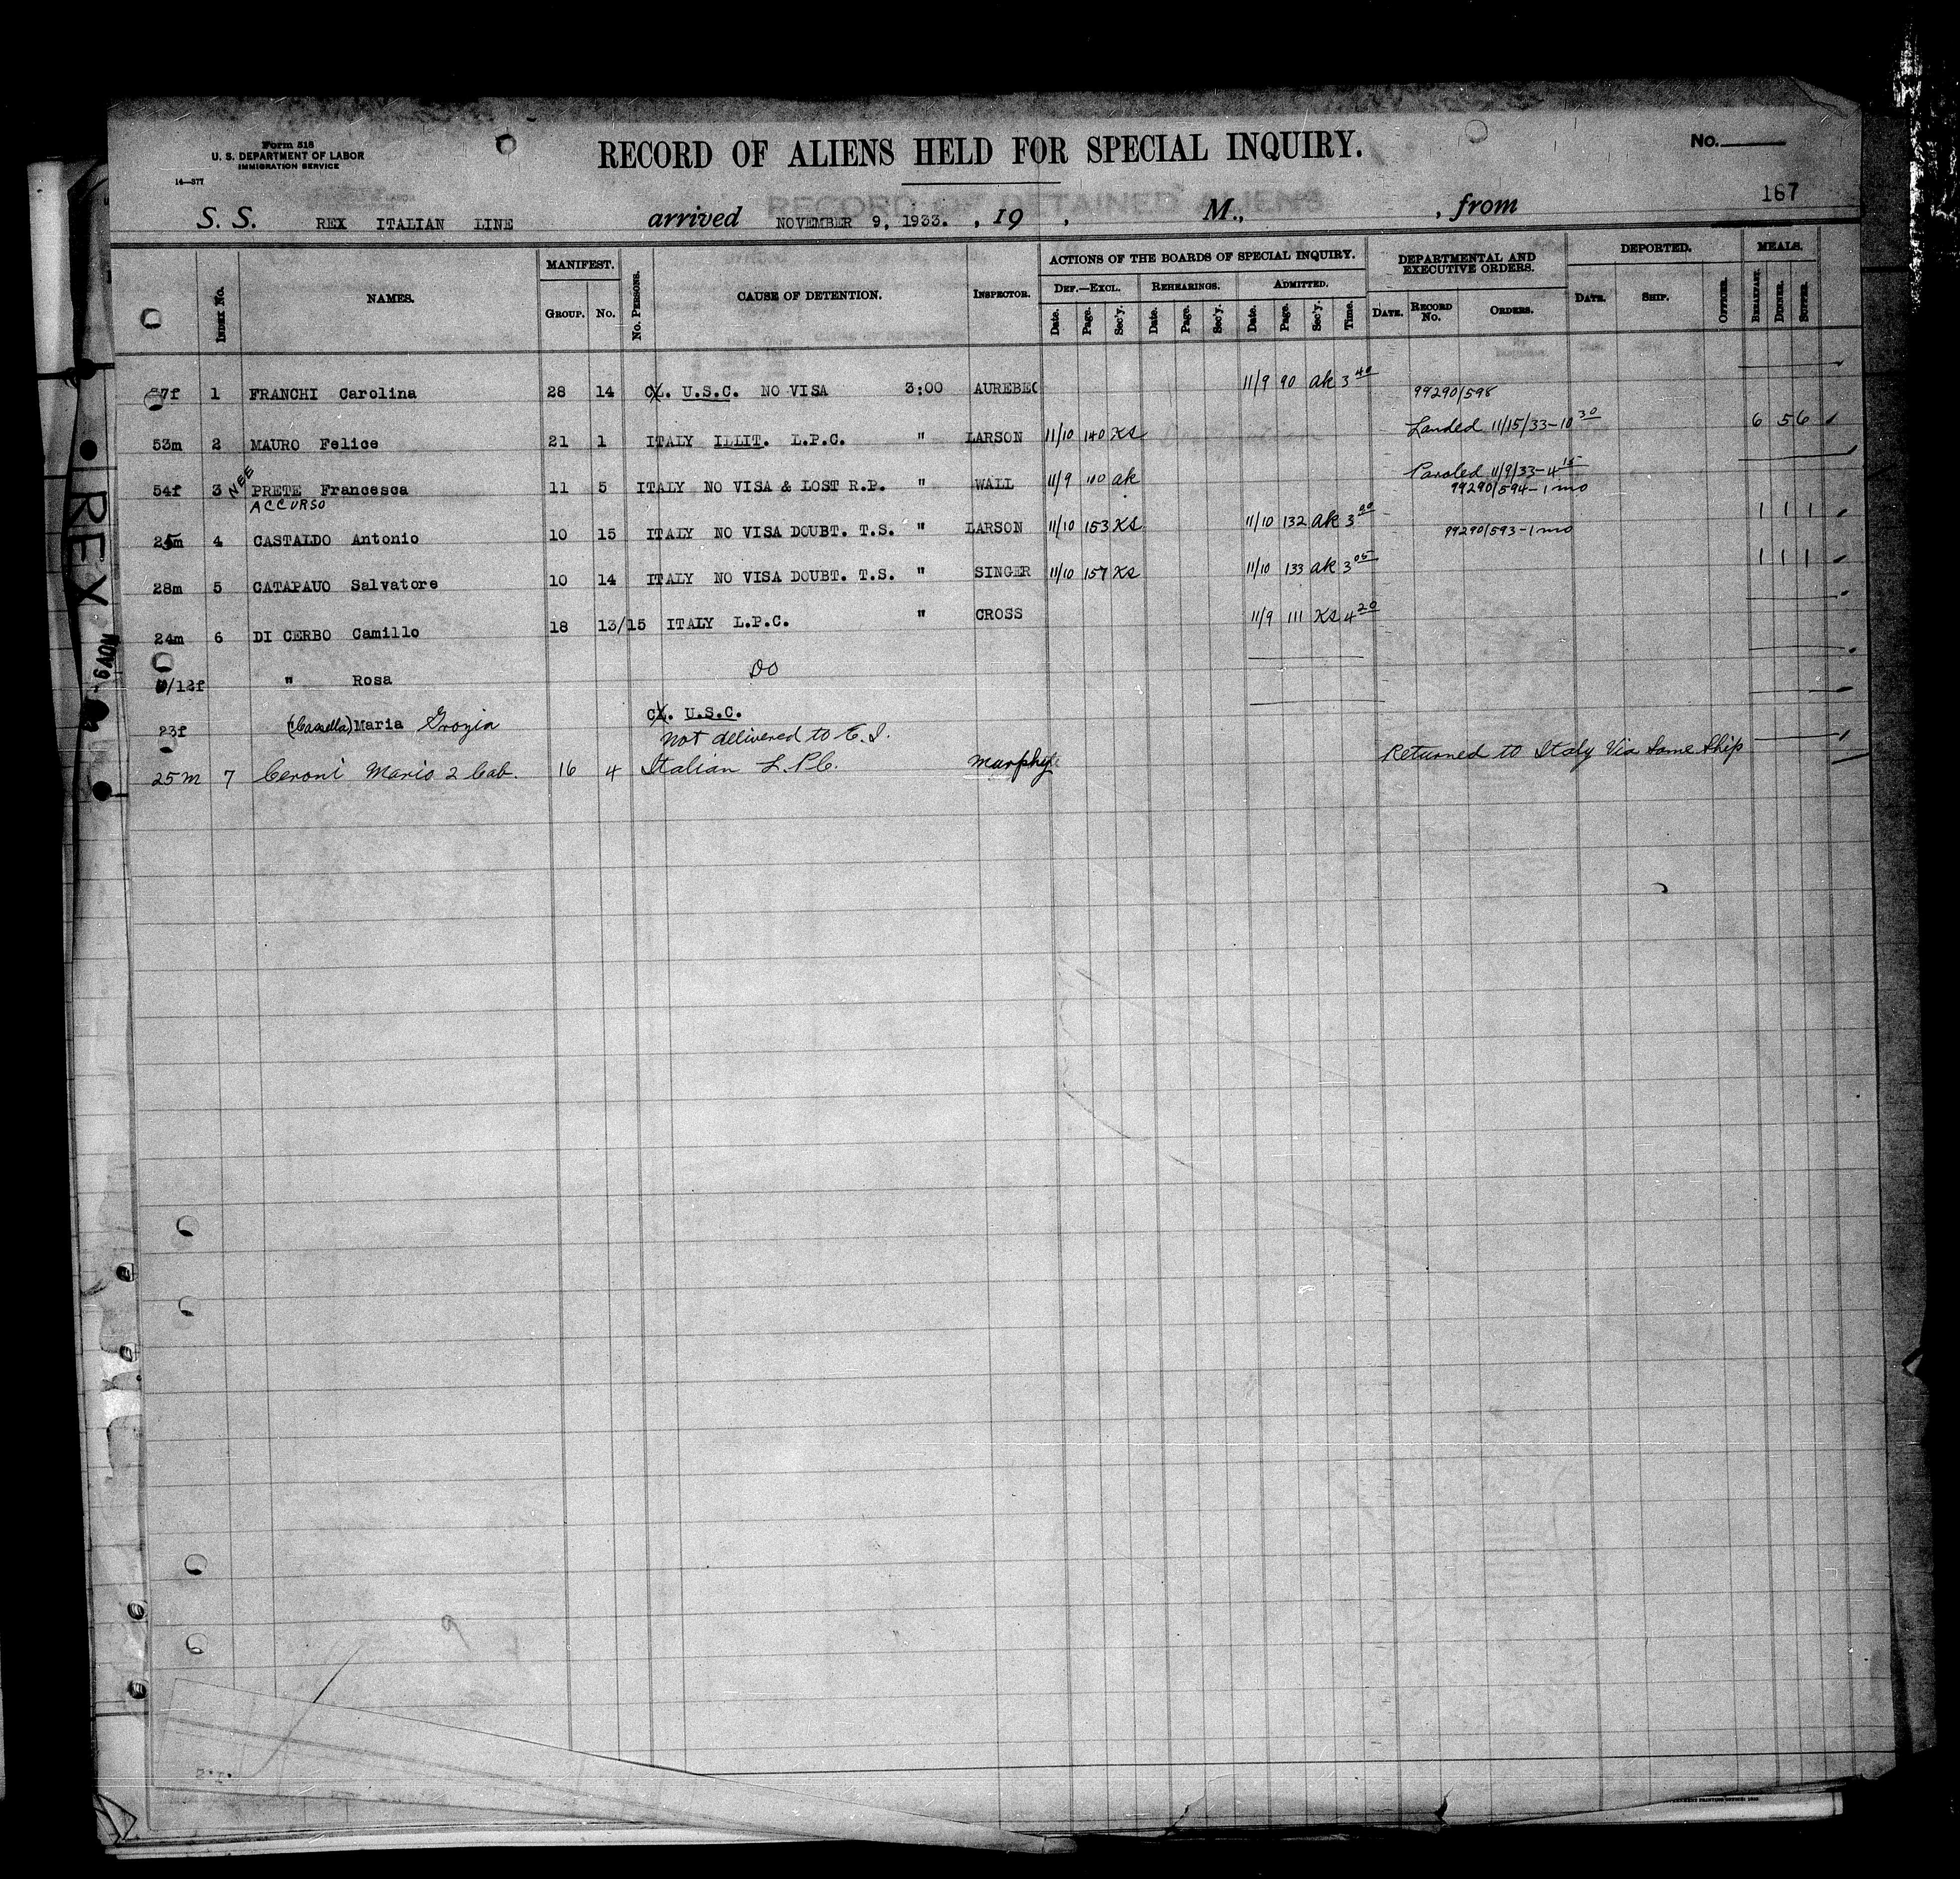 Form 518
U. S. DEPARTMENT OF LABOR
IMMIGRATION SERVICE
14—577
RECORD OF ALIENS HELD FOR SPECIAL INQUIRY.
No.
167
RECORD OF DETAINED ALIENS
S. S. REX ITALIAN LINE arrived NOVEMBER 9, 1933. , 19 , M., , from
Index No. NAMES. MANIFEST. Group. No. No. Persons. CAUSE OF DETENTION. Inspector. ACTIONS OF THE BOARDS OF SPECIAL INQUIRY. Def.—Excl. Date. Page. Sec'y. Rehearings. Date. Page. Sec'y. Admitted. Date. Page. Sec'y. Time. DEPARTMENTAL AND EXECUTIVE ORDERS. Date. Record No. Orders. DEPORTED. Date. Ship. Officer. MEALS. Breakfast. Dinner. Supper.
7f 1 FRANCHI Carolina 28 14 CL. U.S.C. NO VISA 3:00 AUREBEC 11/9 90 ak 3 40 99290/598
53m 2 MAURO Felice 21 1 ITALY ILLIT. L.P.C. " LARSON 11/10 140 KS Landed 11/15/33-10 30 6 5 6
54f 3 NEE PRETE Francesca 11 5 ITALY NO VISA & LOST R.P. " WALL 11/9 110 ak Paroled 11/9/33-4 15
ACCURSO 99290/594-1mo
4 CASTALDO Antonio 10 15 ITALY NO VISA DOUBT. T.S. " LARSON 11/10 153 KS 11/10 132 ak 3 99290/593-1mo 1 1 1
28m 5 CATAPAUO Salvatore 10 14 ITALY NO VISA DOUBT. T.S. " SINGER 11/10 157 KS 11/10 133 ak 3 05 1 1 1
24m 6 DI CERBO Camillo 18 13/15 ITALY L.P.C. " CROSS 11/9 111 KS 4 20
/12f " Rosa DO
23f (Cassella) Maria Grozia CL. U.S.C.
not delivered to E. I.
25m 7 Ceroni Mario 2 Cab. 16 4 Italian L.P.C. Murphy Returned to Italy Via Same Ship
REX NOV 9